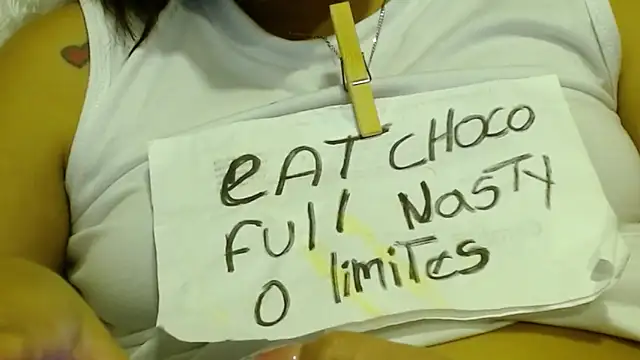 eAT CHOCO
FUll NASTY
0 limiTes